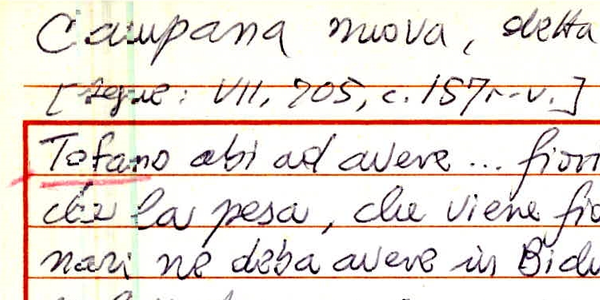 Campana nuova, detta
[segue: VII, 705, c. 157r-v.]
Tofano abi ad avere ... fiori
che la pesa, che viene fio
nari ne deba avere in Bidu